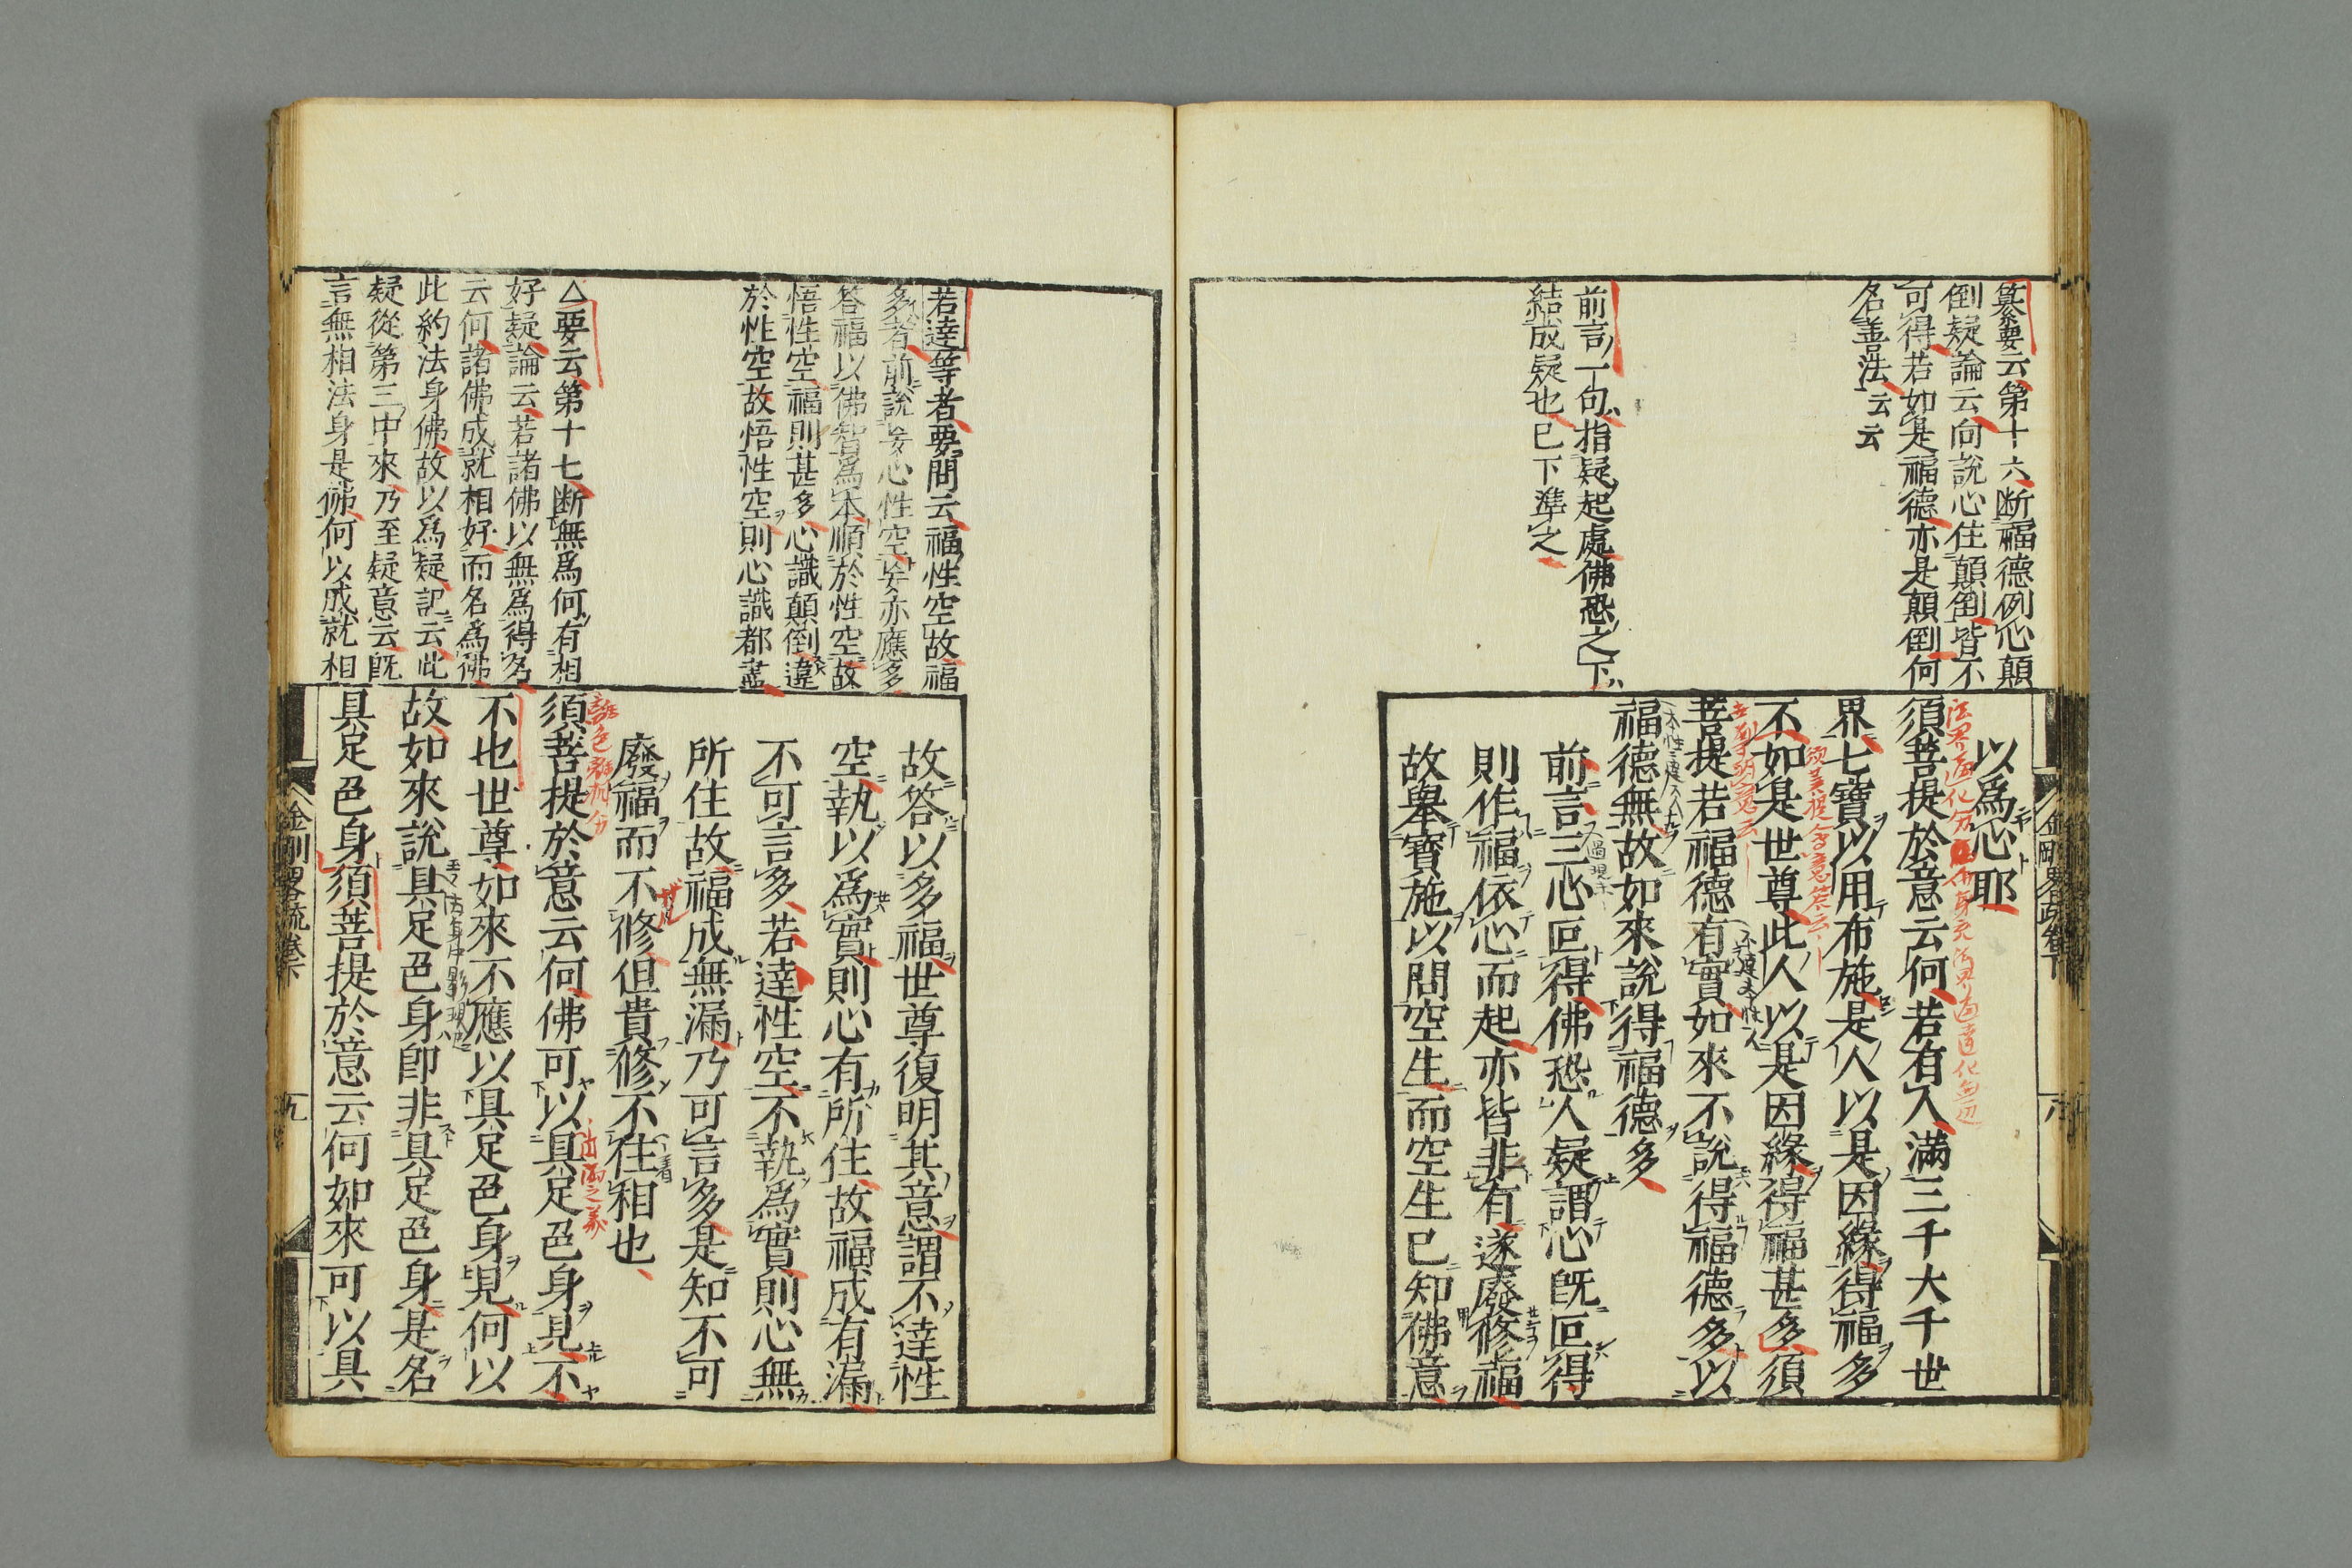 纂要云第十六断福德例心顛
倒疑論云向說心住顛倒皆不
可得若如是福德亦是顛倒何
名善法云云
前言一句指疑起處佛恐之下
結成疑也已下準之
以爲心耶
須菩提於意云何若有人滿三千大千世
界七寶以用布施是人以是因緣得福多
不如是世尊此人以是因緣得福甚多須
菩提若福德有實如來不說得福德多以
福德無故如來說得福德多
前言三心叵得佛恐人疑謂心旣叵得
則作福依心而起亦皆非有遂廢修福
故舉寶施以問空生而空生已知佛意
若達等者要問云福性空故福
多者前說妄心性空妄亦應多
答福以佛智爲本順於性空故
悟性空福則甚多心識顛倒違
於性空故悟性空則心識都盡
△要云第十七断無爲何有相
好疑論云若諸佛以無爲得名
云何諸佛成就相好而名爲佛
此約法身佛故以爲疑記云此
疑從第三中來乃至疑意云旣
言無相法身是佛何以成就相
故答以多福世尊復明其意謂不達性
空執以爲實則心有所住故福成有漏
不可言多若達性空不執爲實則心無
所住故福成無漏乃可言多是知不可
廢福而不修但貴修不住相也
離色離相分
須菩提於意云何佛可以具足色身見不
不也世尊如來不應以具足色身見何以
故如來說具足色身卽非具足色身是名
具足色身須菩提於意云何如來可以具
金剛略疏卷下
九